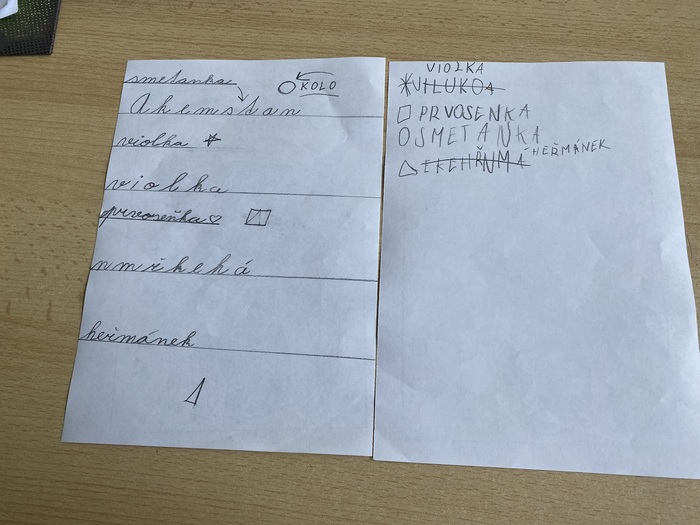 smetanka
KOLO
Akemstan
violka
violka
prvoseňka
nmřkehá
heřmánek
VIOLKA
VILUKOA
PRVOSENKA
SMETANKA
HEŘMÁNEK